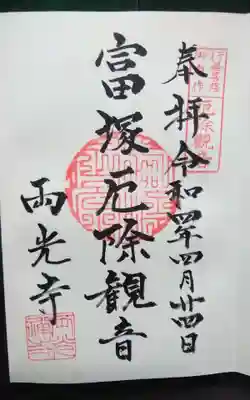 奉拝
令和四年四月廿四日
富塚厄除観音
両光寺